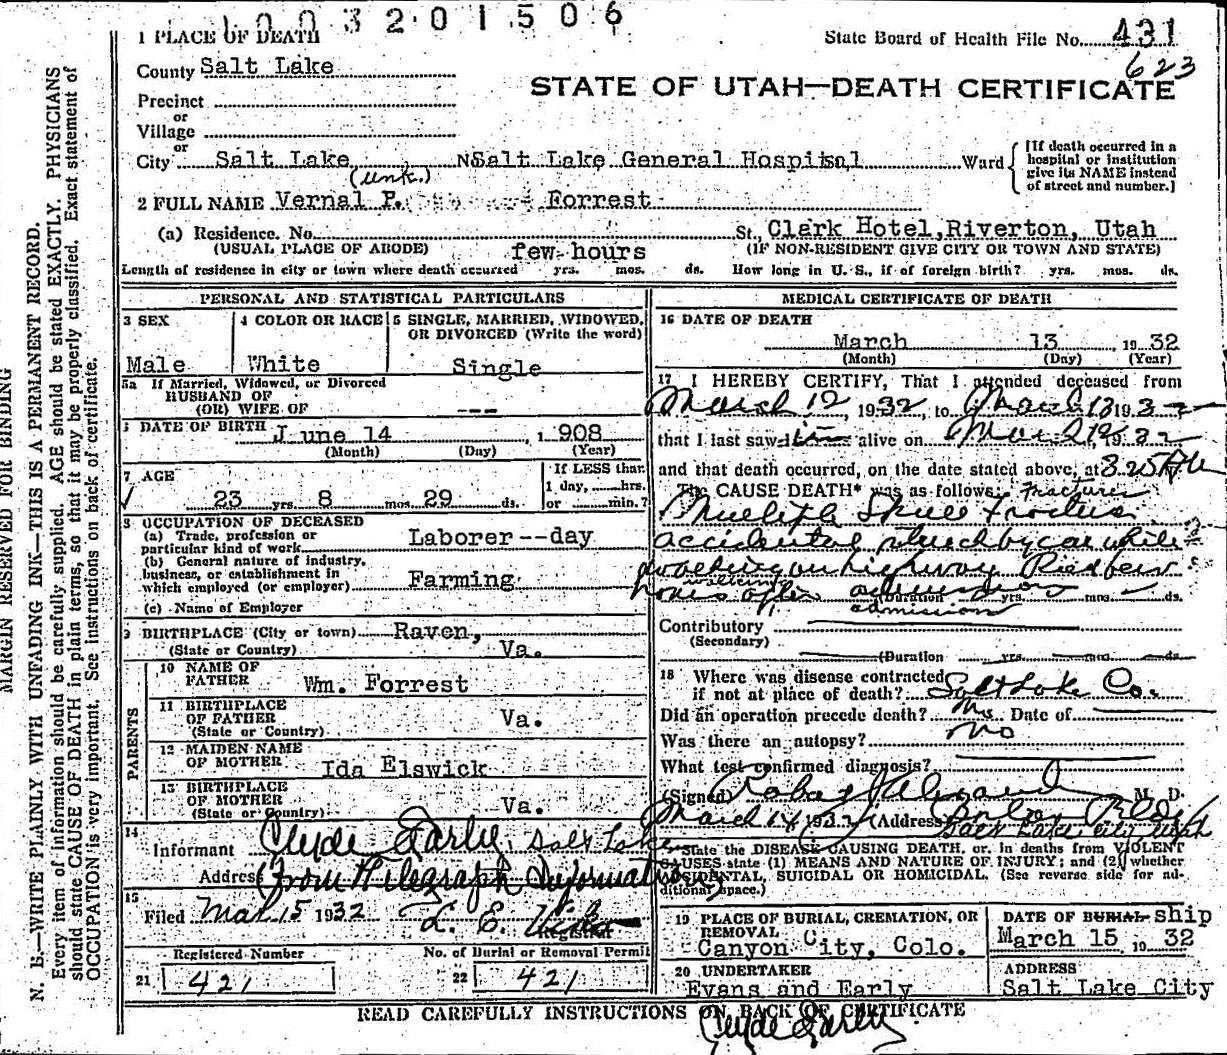 1003201506
1 PLACE OF DEATH
State Board of Health File No. 431
623
County Salt Lake
STATE OF UTAH—DEATH CERTIFICATE
Precinct
or
Village
or
City Salt Lake No Salt Lake General Hospital Ward
[If death occurred in a hospital or institution give its NAME instead of street and number.]
(unk.)
2 FULL NAME Vernal P. Forrest
(a) Residence. No. St., Clark Hotel, Riverton, Utah
(USUAL PLACE OF ABODE) (IF NON-RESIDENT GIVE CITY OR TOWN AND STATE)
few hours
Length of residence in city or town where death occurred yrs. mos. ds. How long in U. S., if of foreign birth? yrs. mos. ds.
PERSONAL AND STATISTICAL PARTICULARS
3 SEX
Male
4 COLOR OR RACE
White
5 SINGLE, MARRIED, WIDOWED, OR DIVORCED (Write the word)
Single
5a If Married, Widowed, or Divorced
HUSBAND OF
(OR) WIFE OF ---
6 DATE OF BIRTH June 14, 1908
(Month) (Day) (Year)
7 AGE
23 yrs. 8 mos. 29 ds.
If LESS than
1 day, hrs.
or min.?
8 OCCUPATION OF DECEASED
(a) Trade, profession or
particular kind of work Laborer--day
(b) General nature of industry,
business, or establishment in
which employed (or employer) Farming
(c) Name of Employer
9 BIRTHPLACE (City or town) Raven,
(State or Country) Va.
PARENTS
10 NAME OF
FATHER Wm. Forrest
11 BIRTHPLACE
OF FATHER Va.
(State or Country)
12 MAIDEN NAME
OF MOTHER Ida Elswick
13 BIRTHPLACE
OF MOTHER Va.
(State or Country)
14
Informant Clyde Early, Salt Lake
Address (From Telegraph Information)
15
Filed Mar 15 1932 L. E.
Registrar
Registered Number
21 421
No. of Burial or Removal Permit
22 421
MEDICAL CERTIFICATE OF DEATH
16 DATE OF DEATH
March 13 1932
(Month) (Day) (Year)
17 I HEREBY CERTIFY, That I attended deceased from
March 12, 1932, to March 13 1932
that I last saw him alive on March 12 1932
and that death occurred, on the date stated above, at 3.25 AM
The CAUSE DEATH* was as follows: Fractures
Multiple Skull Fractures
accidental struck by car while
walking on highway Died few
walking
hours after admission
(Duration yrs. mos. ds.
admission
Contributory
(Secondary)
(Duration yrs. mos. ds.
18 Where was disease contracted
if not at place of death? Salt Lake Co.
Did an operation precede death? No Date of
Was there an autopsy? No
What test confirmed diagnosis?
(Signed) M. D.
March 14 1932 (Address)
Salt Lake City Utah
*State the DISEASE CAUSING DEATH, or, in deaths from VIOLENT
CAUSES state (1) MEANS AND NATURE OF INJURY; and (2) whether
ACCIDENTAL, SUICIDAL OR HOMICIDAL. (See reverse side for additional space.)
19 PLACE OF BURIAL, CREMATION, OR
REMOVAL
Canyon City, Colo.
DATE OF BURIAL ship
March 15 1932
20 UNDERTAKER
Evans and Early
ADDRESS
Salt Lake City
READ CAREFULLY INSTRUCTIONS ON BACK OF CERTIFICATE
Clyde Early
MARGIN RESERVED FOR BINDING
N. B.—WRITE PLAINLY WITH UNFADING INK—THIS IS A PERMANENT RECORD.
Every item of information should be carefully supplied. AGE should be stated EXACTLY. PHYSICIANS
should state CAUSE OF DEATH in plain terms, so that it may be properly classified. Exact statement of
OCCUPATION is very important. See instructions on back of certificate.